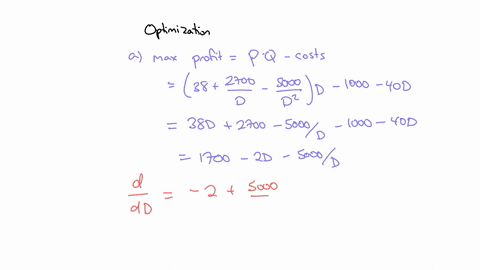 Optimization
a) max profit = P·Q - costs
= (38 + 2700/D - 5000/D²)D - 1000 - 40D
= 38D + 2700 - 5000/D - 1000 - 40D
= 1700 - 2D - 5000/D
d/dD = -2 + 5000/